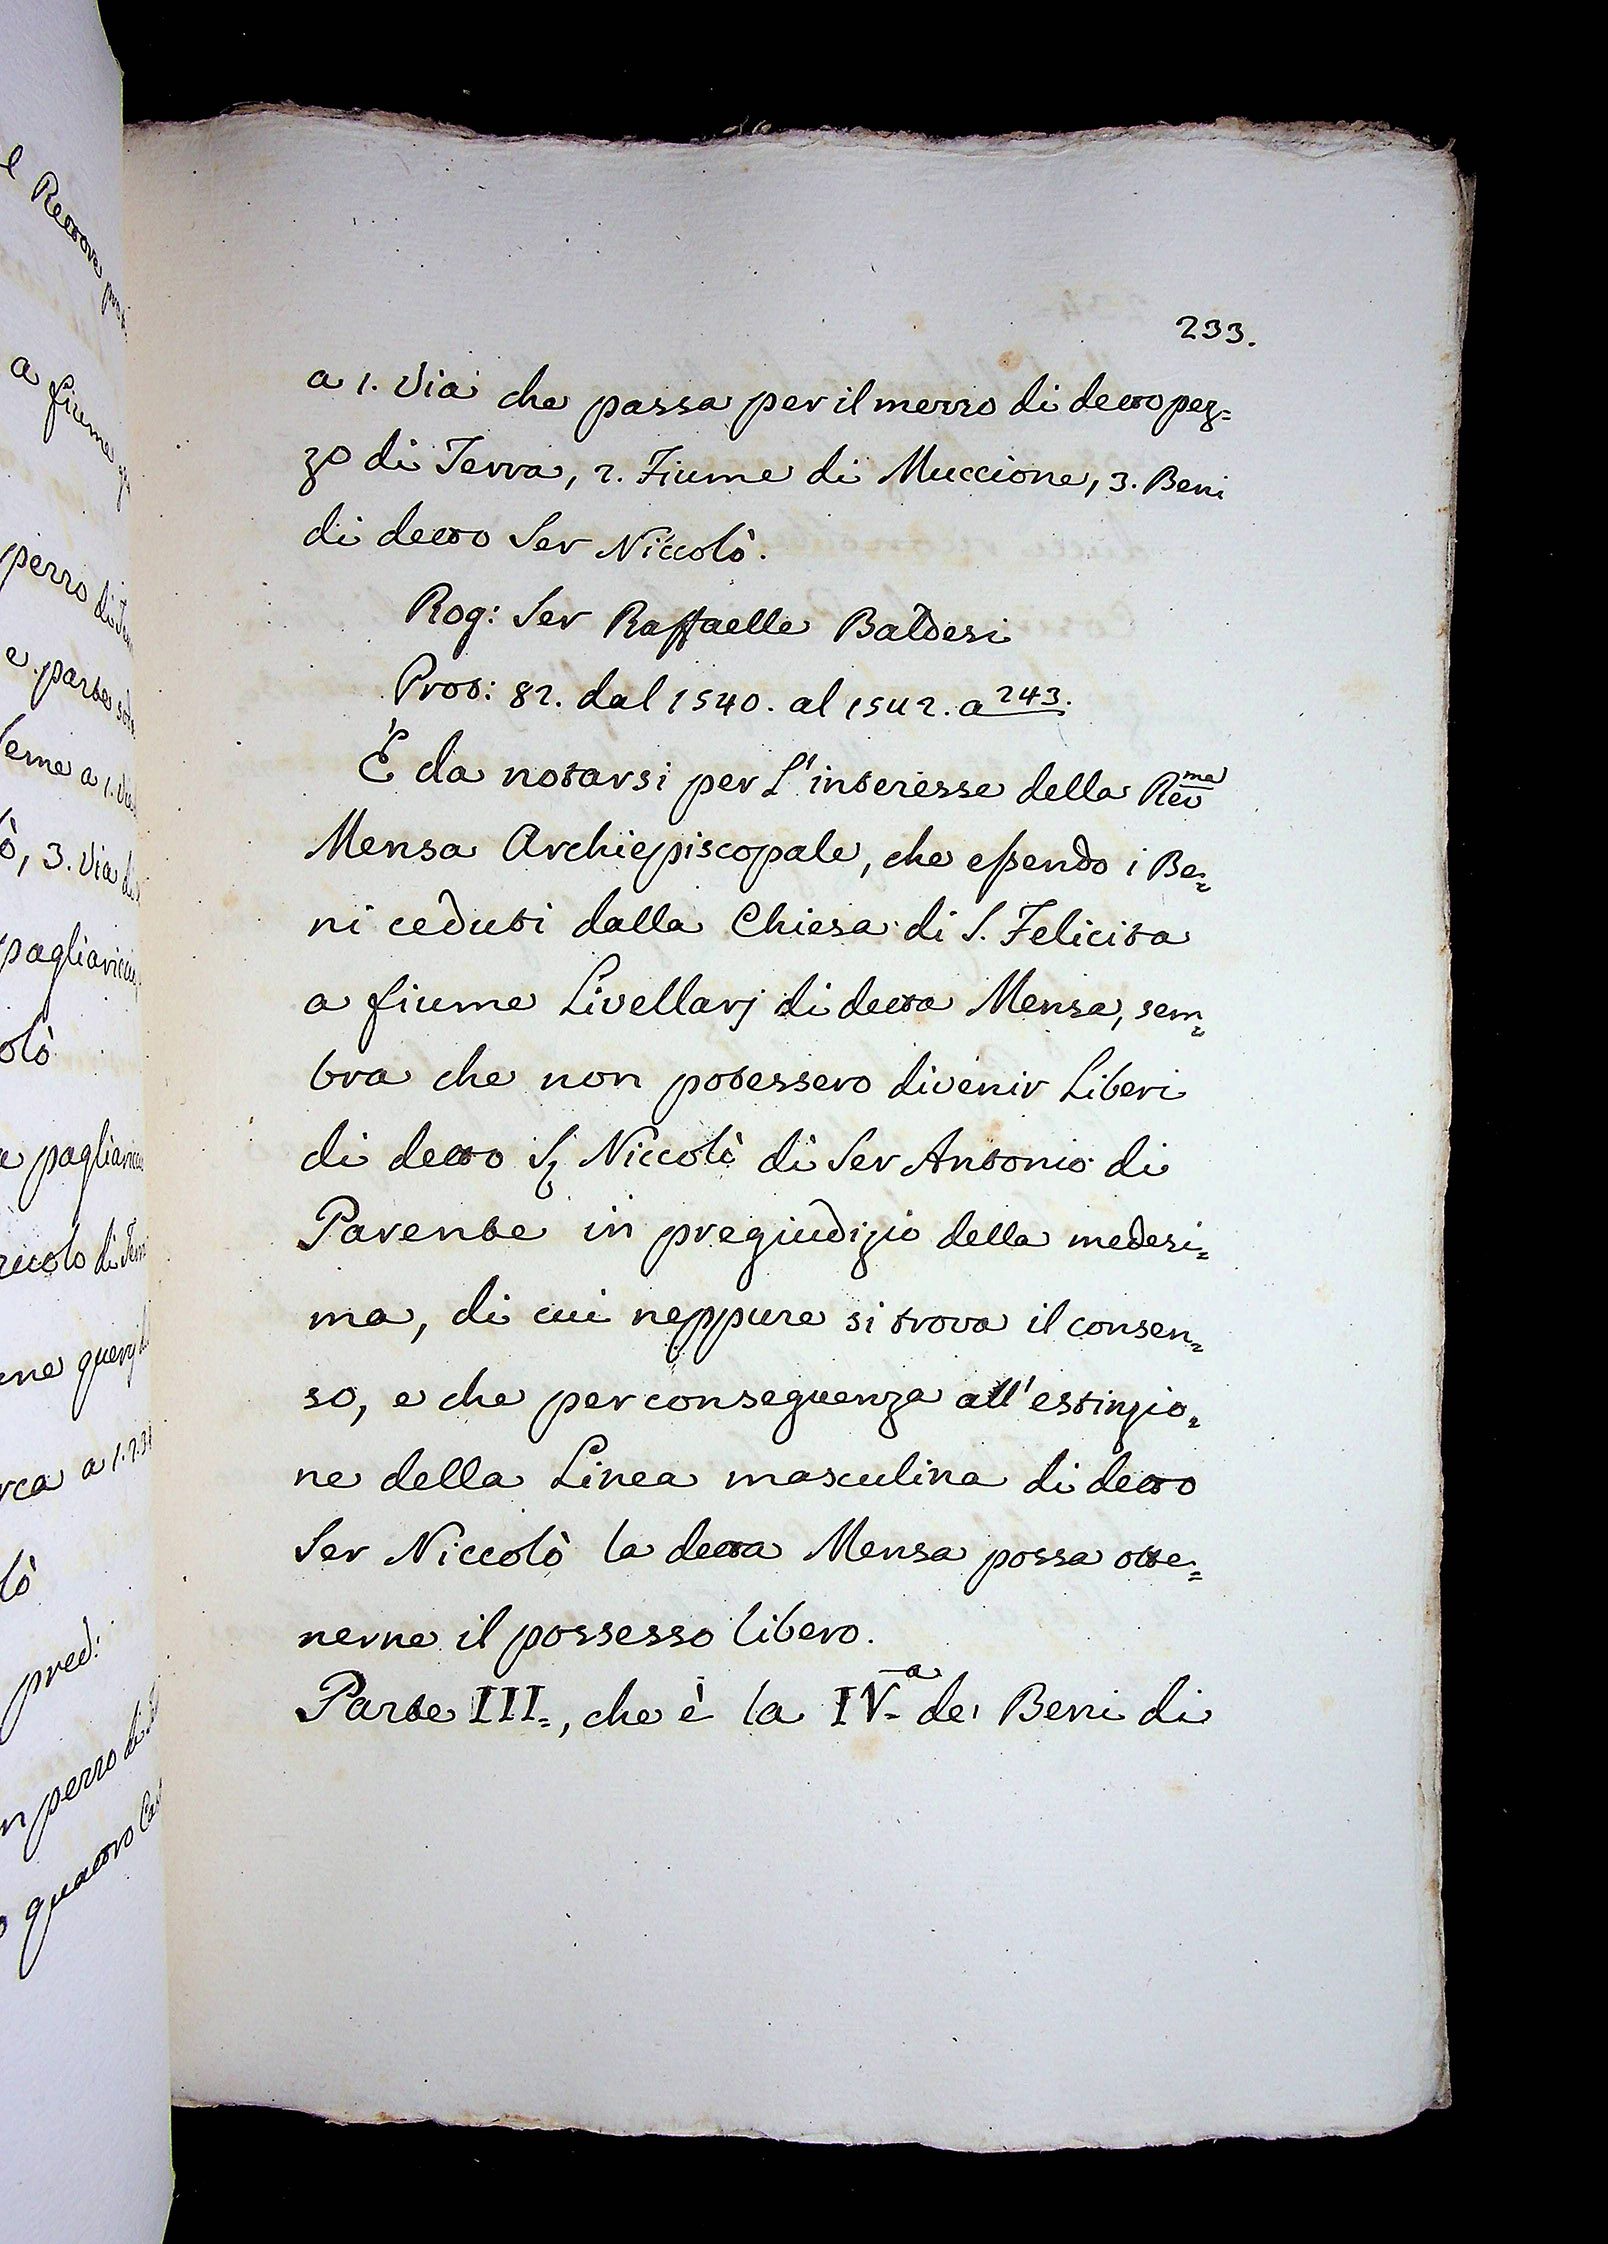 233.
a 1. Via che passa per il mezzo di detto pez=
zo di Terra, 2. Fiume di Muccione, 3. Beni
di detto Ser Niccolò.
Rog: Ser Raffaelle Baldesi
Prot: 82. dal 1540. al 1542. a 243.
È da notarsi per l'interesse della Rev.ma
Mensa Archiepiscopale, che essendo i Be=
ni ceduti dalla Chiesa di S. Felicita
a fiume Livellarj di detta Mensa, sem=
bra che non potessero divenir Liberi
di detto S. Niccolò di Ser Antonio di
Parente in pregiudizio della medesi=
ma, di cui neppure si trova il consen=
so, e che per conseguenza all'estinzio=
ne della Linea masculina di detto
Ser Niccolò la detta Mensa possa otte=
nerne il possesso libero.
Parte III=, che è la IV.a de' Beni di